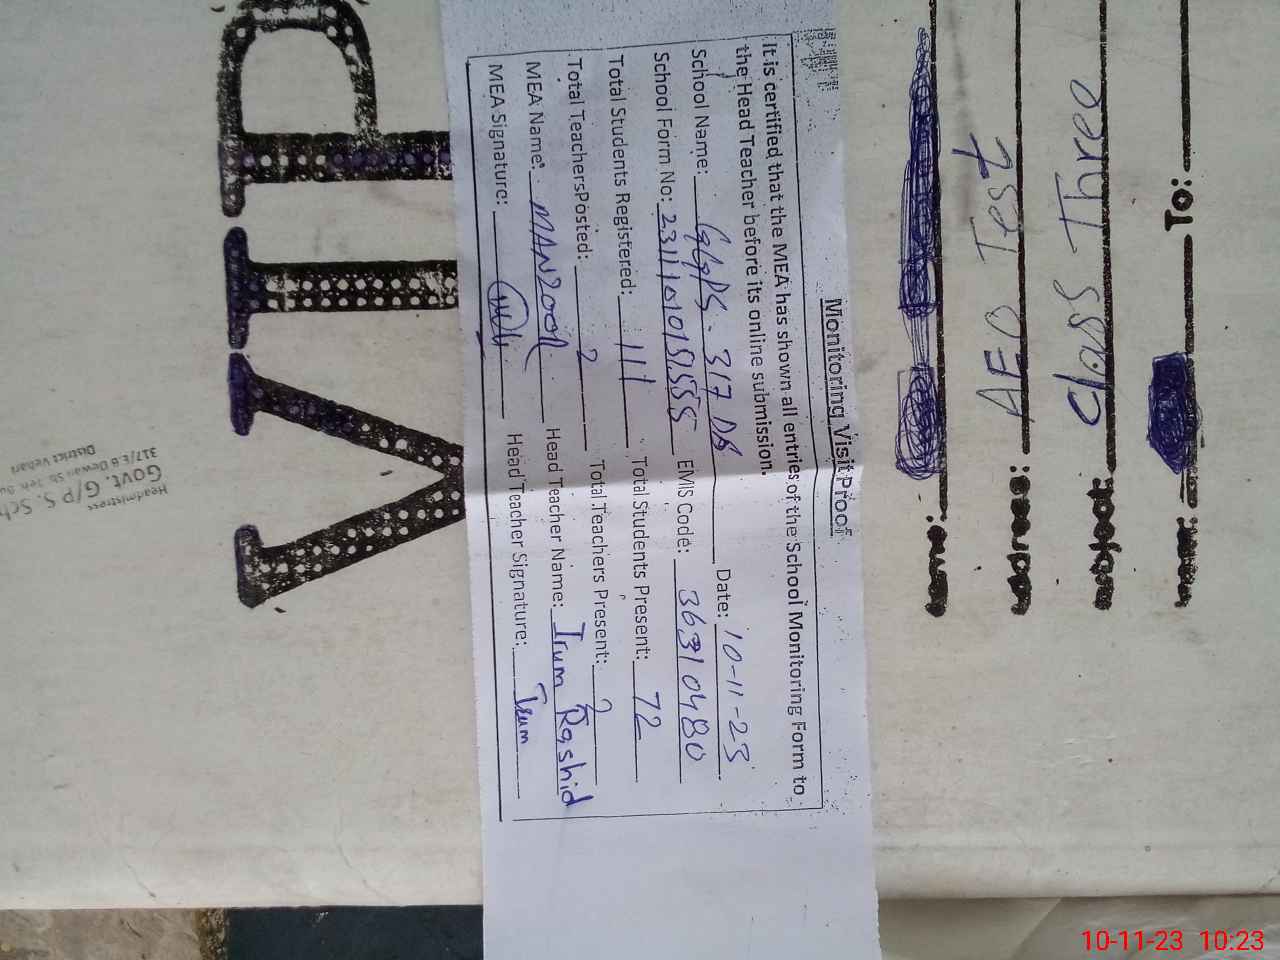 Monitoring Visit Proof
It is certified that the MEA has shown all entries of the School Monitoring Form to
the Head Teacher before its online submission.
School Name: GGPS. 317 DB Date: 10-11-23
School Form No: EMIS Code: 36310480
Total Students Registered: 111 Total Students Present: 72
Total TeachersPosted: 2 Total Teachers Present: 2
MEA Name: Head Teacher Name: Irum Rashid
MEA Signature: Head Teacher Signature: Irum
To:
Class Three
AEO Test
VIP
Headmistress
Govt. G/P S. Sch
317/E.B Dewan Sb Teh. Bu
District Vehari
10-11-23 10:23